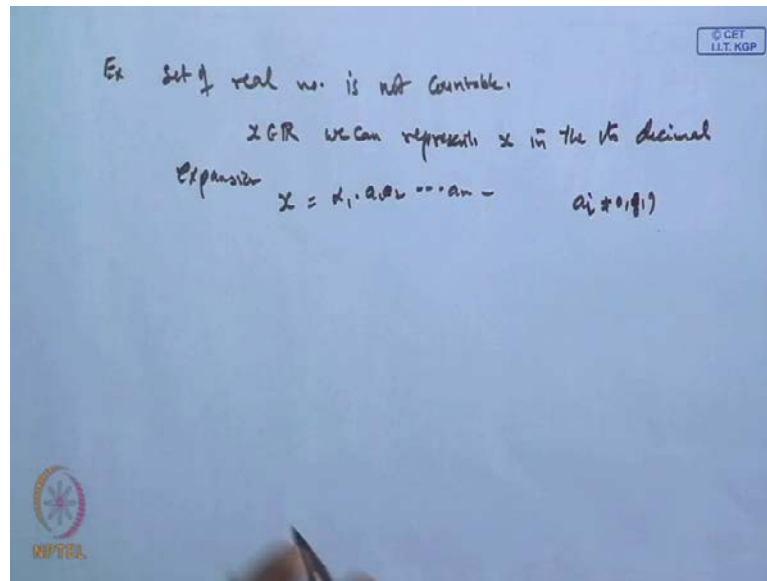 © CET
I.I.T. KGP
Ex Set of real no. is not countable.
x ∈ R we can represents x in the its decimal
expansion
x = α₁ . a₁a₂ ... aₙ –
NPTEL